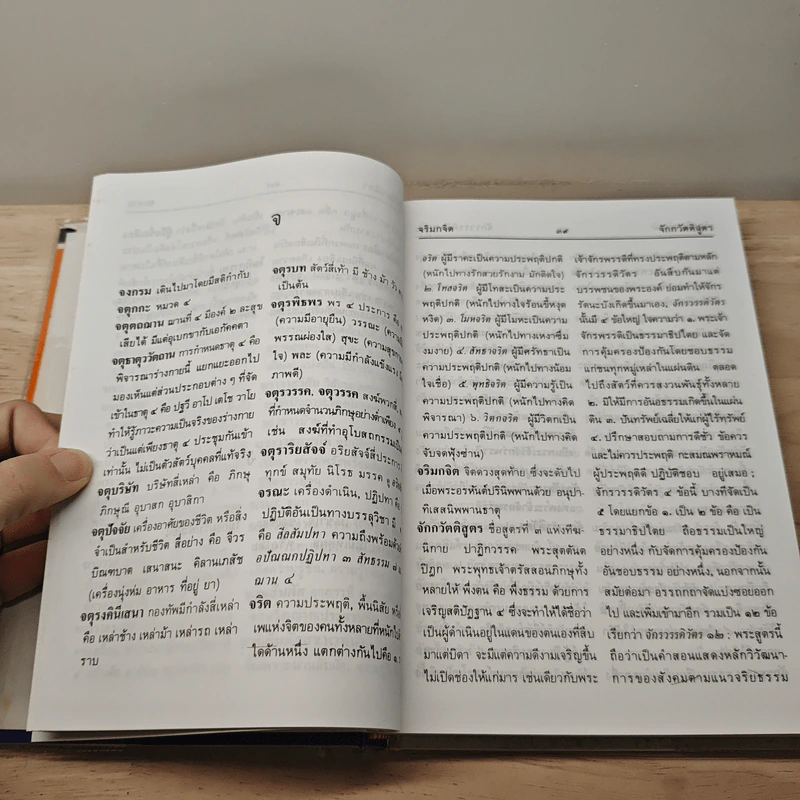 จ
จงกรม เดินไปมาโดยมีสติกำกับ
จตุกกะ หมวด ๔
จตุตถฌาน ฌานที่ ๔ มีองค์ ๒ ละสุข
เสียได้ มีแต่อุเบกขากับเอกัคคตา
จตุธาตุววัตถาน การกำหนดธาตุ ๔ คือ
พิจารณาร่างกายนี้ แยกแยะออกไป
มองเห็นแต่ส่วนประกอบต่าง ๆ ที่จัด
เข้าในธาตุ ๔ คือ ปฐวี อาโป เตโช วาโย
ทำให้รู้ภาวะความเป็นจริงของร่างกาย
ว่าเป็นแต่เพียงธาตุ ๔ ประชุมกันเข้า
เท่านั้น ไม่เป็นตัวสัตว์บุคคลที่แท้จริง
จตุบริษัท บริษัทสี่เหล่า คือ ภิกษุ
ภิกษุณี อุบาสก อุบาสิกา
จตุปัจจัย เครื่องอาศัยของชีวิต หรือสิ่ง
จำเป็นสำหรับชีวิต สี่อย่าง คือ จีวร
บิณฑบาต เสนาสนะ คิลานเภสัช
(เครื่องนุ่งห่ม อาหาร ที่อยู่ ยา)
จตุรงคินีเสนา กองทัพมีกำลังสี่เหล่า
คือ เหล่าช้าง เหล่าม้า เหล่ารถ เหล่า
ราบ
จตุรบท สัตว์สี่เท้า มี ช้าง ม้า วัว
เป็นต้น
จตุรพิธพร พร ๔ ประการ คือ
(ความมีอายุยืน) วรรณะ
พรรณผ่องใส) สุขะ
ใจ) พละ (ความมีกำลังแข็งแรง
ภาพดี)
จตุรวรรค, จตุวรรค สงฆ์พวกสี่,
ที่กำหนดจำนวนภิกษุอย่างต่ำเพียง
เช่น สงฆ์ที่ทำอุโบสถกรรมเป็น
จตุราริยสัจจ์ อริยสัจจ์สี่ประการ
ทุกข์ สมุทัย นิโรธ มรรค ดู
จรณะ เครื่องดำเนิน, ปฏิปทา คือ
ปฏิบัติอันเป็นทางบรรลุวิชชา มี
คือ สีลสัมปทา ความถึงพร้อมด้วย
อปัณณกปฏิปทา ๓ สัทธรรม ๗
ฌาน ๔
จริต ความประพฤติ, พื้นนิสัย หรือ
เพแห่งจิตของคนทั้งหลายที่หนักไป
ใดด้านหนึ่ง แตกต่างกันไปคือ ๑.
จริมกจิต ๓๙ จักกวัตติสูตร
จริต ผู้มีราคะเป็นความประพฤติปกติ
(หนักไปทางรักสวยรักงาม มักติดใจ)
๒. โทสจริต ผู้มีโทสะเป็นความประ
พฤติปกติ (หนักไปทางใจร้อนขี้หงุด
หงิด) ๓. โมหจริต ผู้มีโมหะเป็นความ
ประพฤติปกติ (หนักไปทางเหงาซึม
งมงาย) ๔. สัทธาจริต ผู้มีศรัทธาเป็น
ความประพฤติปกติ (หนักไปทางน้อม
ใจเชื่อ) ๕. พุทธิจริต ผู้มีความรู้เป็น
ความประพฤติปกติ (หนักไปทางคิด
พิจารณา) ๖. วิตกจริต ผู้มีวิตกเป็น
ความประพฤติปกติ (หนักไปทางคิด
จับจดฟุ้งซ่าน)
จริมกจิต จิตดวงสุดท้าย ซึ่งจะดับไป
เมื่อพระอรหันต์ปรินิพพานด้วย อนุปา-
ทิเสสนิพพานธาตุ
จักกวัตติสูตร ชื่อสูตรที่ ๓ แห่งทีฆ-
นิกาย ปาฏิกวรรค พระสุตตันต
ปิฎก พระพุทธเจ้าตรัสสอนภิกษุทั้ง
หลายให้ พึ่งตน คือ พึ่งธรรม ด้วยการ
เจริญสติปัฏฐาน ๔ ซึ่งจะทำให้ได้ชื่อว่า
เป็นผู้ดำเนินอยู่ในแดนของตนเองที่สืบ
มาแต่บิดา จะมีแต่ความดีงามเจริญขึ้น
ไม่เปิดช่องให้แก่มาร เช่นเดียวกับพระ
เจ้าจักรพรรดิที่ทรงประพฤติตามหลัก
จักรวรรดิวัตร อันสืบกันมาแต่
บรรพชนของพระองค์ ย่อมทำให้จักร
รัตนะบังเกิดขึ้นมาเอง, จักรวรรดิวัตร
นั้นมี ๔ ข้อใหญ่ ใจความว่า ๑. พระเจ้า
จักรพรรดิเป็นธรรมาธิปไตย และจัด
การคุ้มครองป้องกันโดยชอบธรรม
แก่ชนทุกหมู่เหล่าในแผ่นดิน ตลอด
ไปถึงสัตว์ที่ควรสงวนพันธุ์ทั้งหลาย
๒. มิให้มีการอันอธรรมเกิดขึ้นในแผ่น
ดิน ๓. ปันทรัพย์เฉลี่ยให้แก่ผู้ไร้ทรัพย์
๔. ปรึกษาสอบถามการดีชั่ว ข้อควร
และไม่ควรประพฤติ กะสมณพราหมณ์
ผู้ประพฤติดี ปฏิบัติชอบ อยู่เสมอ;
จักรวรรดิวัตร ๔ ข้อนี้ บางทีจัดเป็น
๕ โดยแยกข้อ ๑. เป็น ๒ ข้อ คือ เป็น
ธรรมาธิปไตย ถือธรรมเป็นใหญ่
อย่างหนึ่ง กับจัดการคุ้มครองป้องกัน
อันชอบธรรม อย่างหนึ่ง, นอกจากนั้น
สมัยต่อมา อรรถกถาจัดแบ่งซอยออก
ไป และเพิ่มเข้ามาอีก รวมเป็น ๑๒ ข้อ
เรียกว่า จักรวรรดิวัตร ๑๒ ; พระสูตรนี้
ถือว่าเป็นคำสอนแสดงหลักวิวัฒนา-
การของสังคมตามแนวจริยธรรม